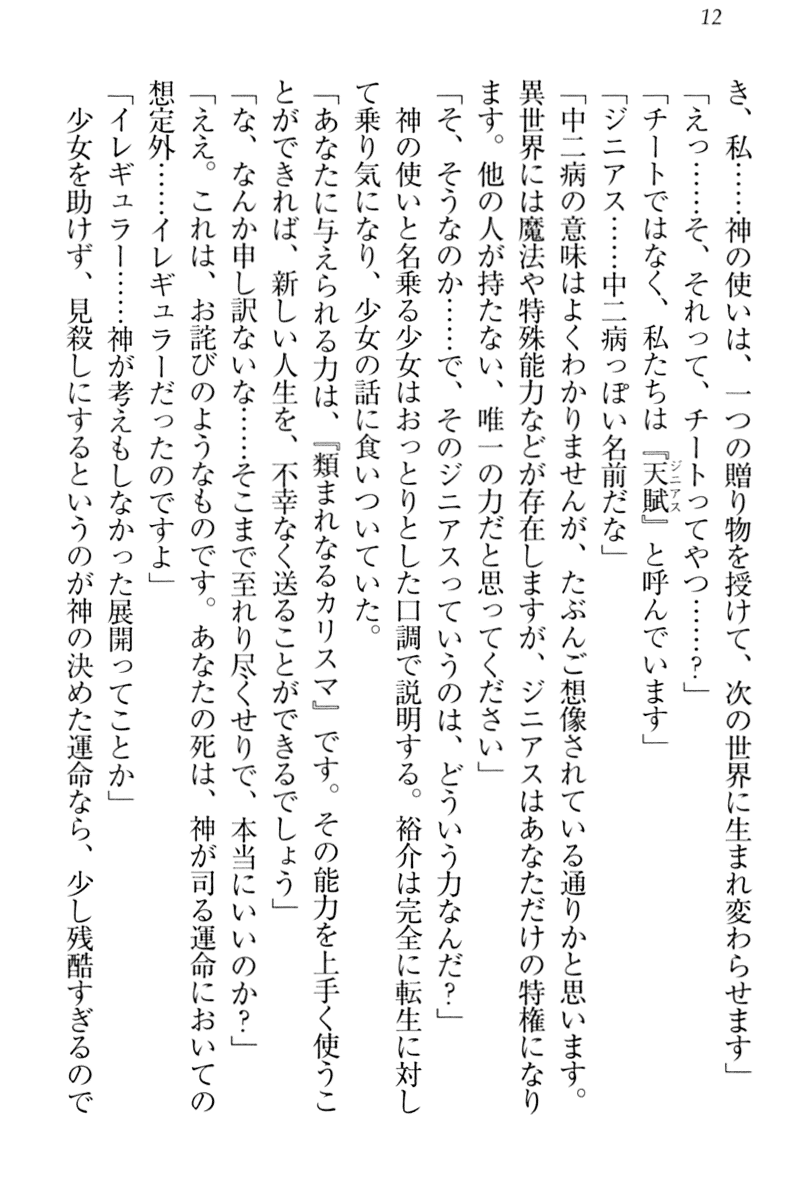 12
き、私……神の使いは、一つの贈り物を授けて、次の世界に生まれ変わらせます」
「えっ……そ、それって、チートってやつ……？」
「チートではなく、私たちは『天賦』と呼んでいます」
ジニアス
「ジニアス……中二病っぽい名前だな」
「中二病の意味はよくわかりませんが、たぶんご想像されている通りかと思います。
異世界には魔法や特殊能力などが存在しますが、ジニアスはあなただけの特権になり
ます。他の人が持たない、唯一の力だと思ってください」
「そ、そうなのか……で、そのジニアスっていうのは、どういう力なんだ？」
神の使いと名乗る少女はおっとりとした口調で説明する。裕介は完全に転生に対し
て乗り気になり、少女の話に食いついていた。
「あなたに与えられる力は、『類まれなるカリスマ』です。その能力を上手く使うこ
とができれば、新しい人生を、不幸なく送ることができるでしょう」
「な、なんか申し訳ないな……そこまで至れり尽くせりで、本当にいいのか？」
「ええ。これは、お詫びのようなものです。あなたの死は、神が司る運命においての
想定外……イレギュラーだったのですよ」
「イレギュラー……神が考えもしなかった展開ってことか」
少女を助けず、見殺しにするというのが神の決めた運命なら、少し残酷すぎるので